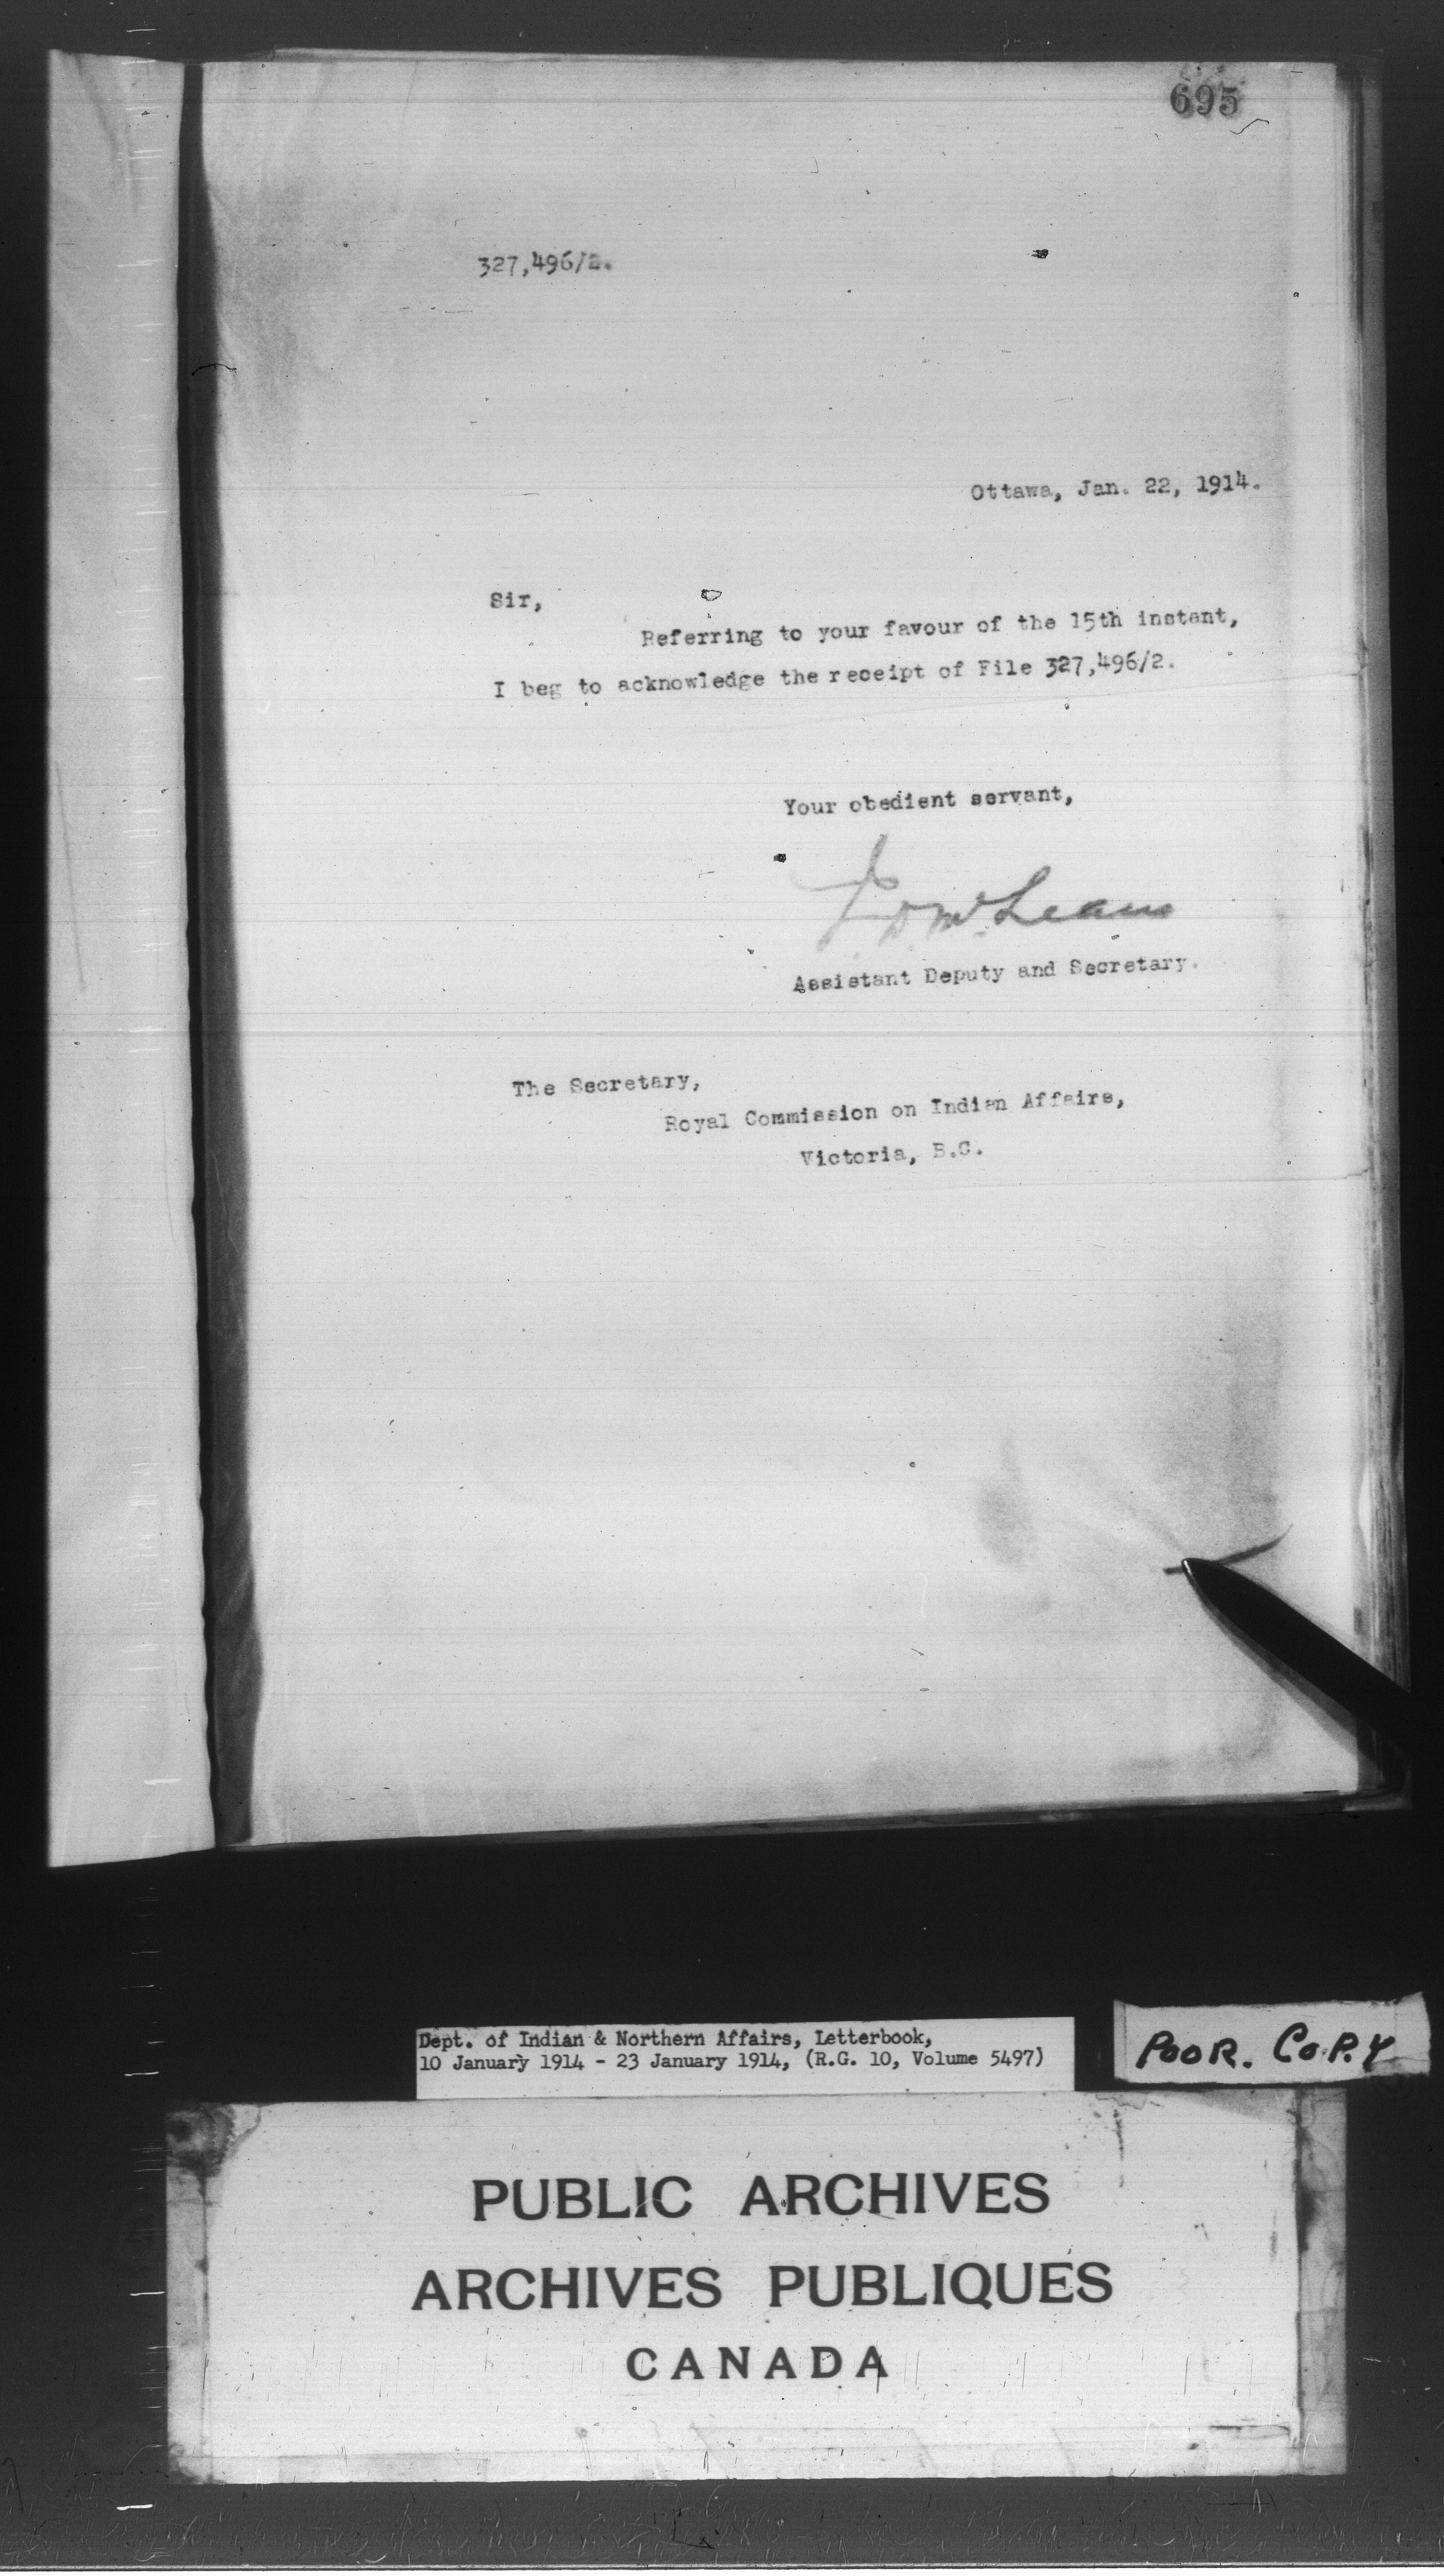 695
327,496/2.
Ottawa, Jan. 22, 1914.
Sir,
Referring to your favour of the 15th instant,
I beg to acknowledge the receipt of File 327,496/2.
Your obedient servant,
J D McLean
Assistant Deputy and Secretary.
The Secretary,
Royal Commission on Indian Affairs,
Victoria, B.C.
Dept. of Indian & Northern Affairs, Letterbook,
10 January 1914 - 23 January 1914, (R.G. 10, Volume 5497)
POOR. COPY
PUBLIC ARCHIVES
ARCHIVES PUBLIQUES
CANADA